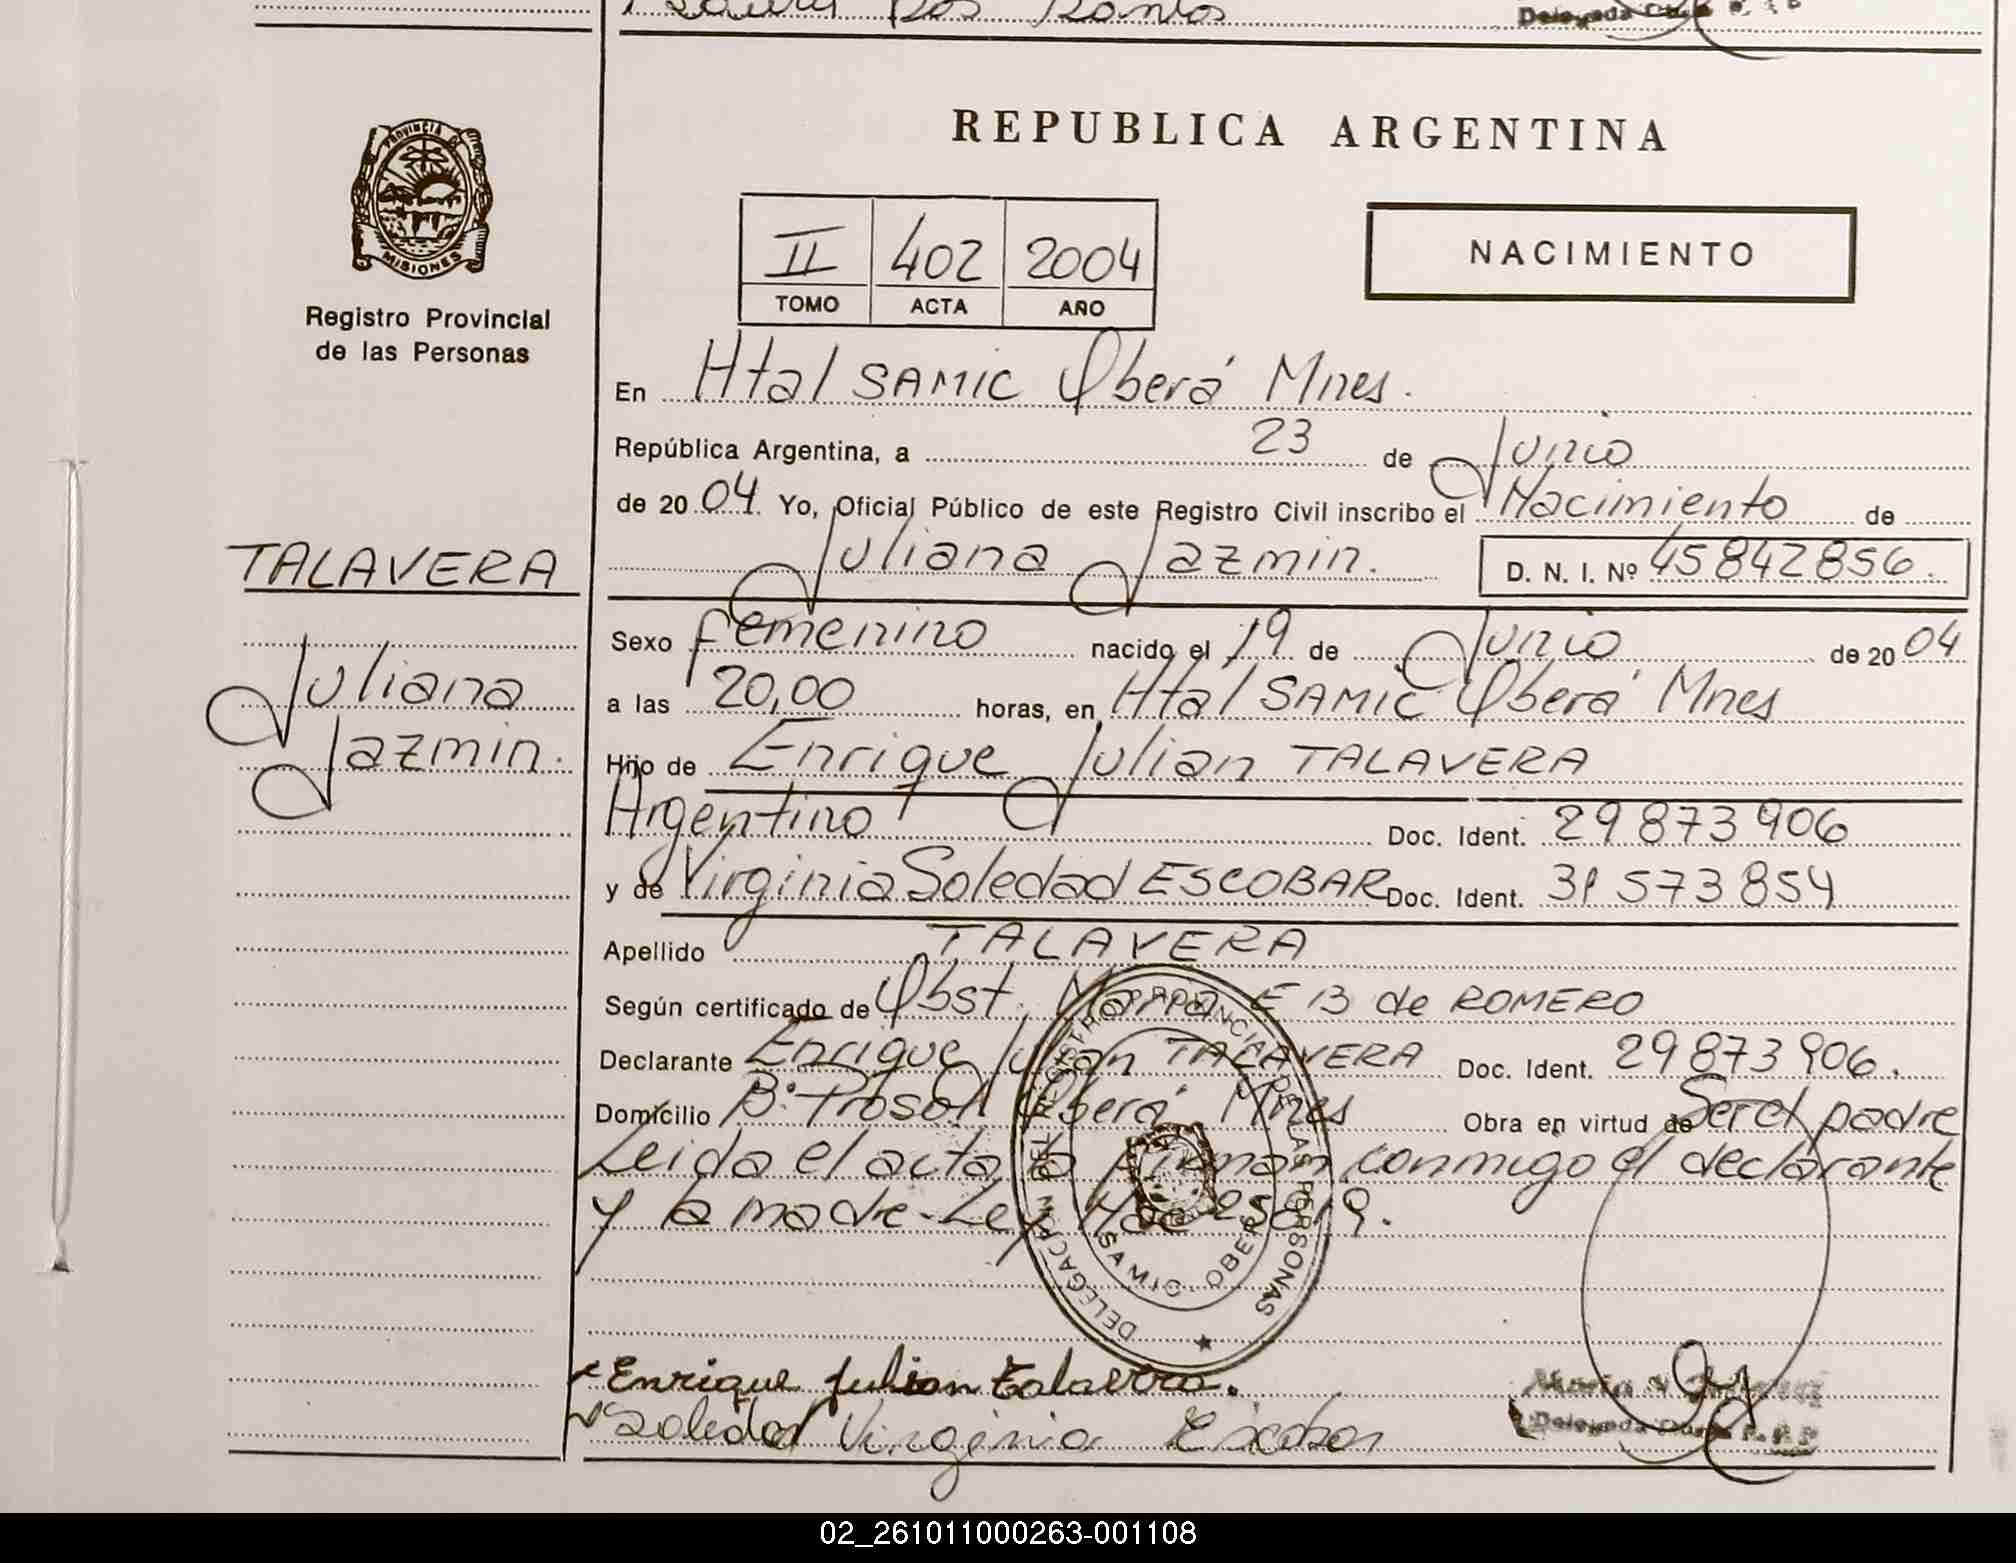 Dos Santos
Delegada
PROVINCIA DE
MISIONES
Registro Provincial
de las Personas
REPUBLICA ARGENTINA
II 402 2004
TOMO ACTA AÑO
NACIMIENTO
En Htal SAMIC Oberá Mnes.
República Argentina, a 23 de Junio
de 20 04 Yo, Oficial Público de este Registro Civil inscribo el Nacimiento de
Juliana Jazmin. D. N. I. Nº 45842856.
TALAVERA
Juliana
Jazmin.
Sexo femenino nacido el 19 de Junio de 20 04
a las 20,00 horas, en Htal SAMIC Oberá Mnes
Hijo de Enrique Julian TALAVERA
Argentino Doc. Ident. 29873906
y de Virginia Soledad ESCOBAR Doc. Ident. 31573854
Apellido TALAVERA
Según certificado de Obst. Maria E B de ROMERO
Declarante Enrique Julian TALAVERA Doc. Ident. 29873906.
Domicilio B: Prosol Oberá Mnes Obra en virtud de Ser el padre
Leida el acta la firman conmigo el declarante
y la madre-Ley Nac 25819.
DELEGACION DEL REGISTRO PROVINCIAL DE LAS PERSONAS
SAMIC OBERA
Enrique julian talavera.
Soledad Virginia Escobar
Delegada
02_261011000263-001108